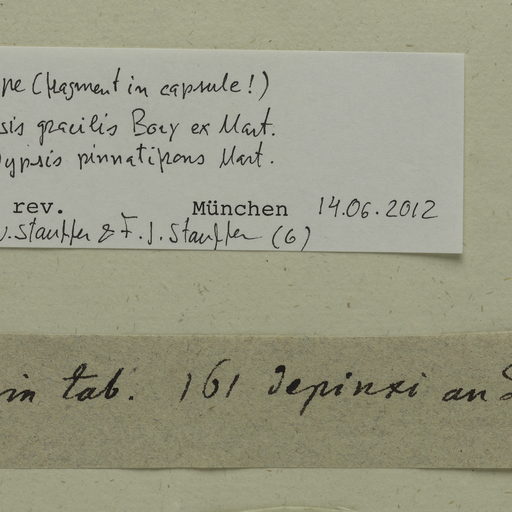 pe (fragment in capsule!)
sis gracilis Bory ex Mart.
ypsis pinnatifrons Mart.
rev. München 14.06.2012
Stauffer & F. J. Stauffer (G)
in tab. 161 depinxi an